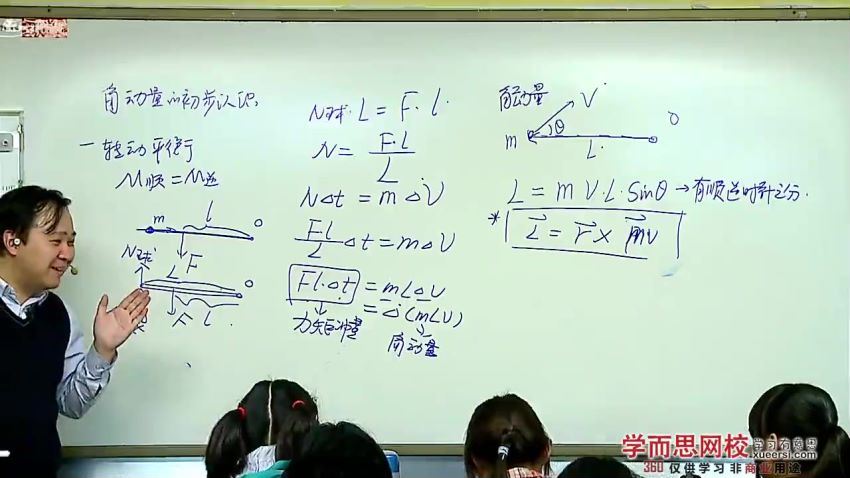 角动量的初步认识
一 转动平衡
M顺 = M逆
m l O
F
N球 L O
F l
N球·L = F·l
N = F·l / L
NΔt = mΔV
F·l / L Δt = mΔV
Fl·Δt = mLΔU
= Δ(mLU)
力矩冲量
角动量
角动量
V
m θ O
L
L = mV·L·Sinθ → 有顺逆时针之分.
* L⃗ = r⃗ × m⃗v
学而思网校
学习有意思
xueersi.com
360 仅供学习 非商业用途